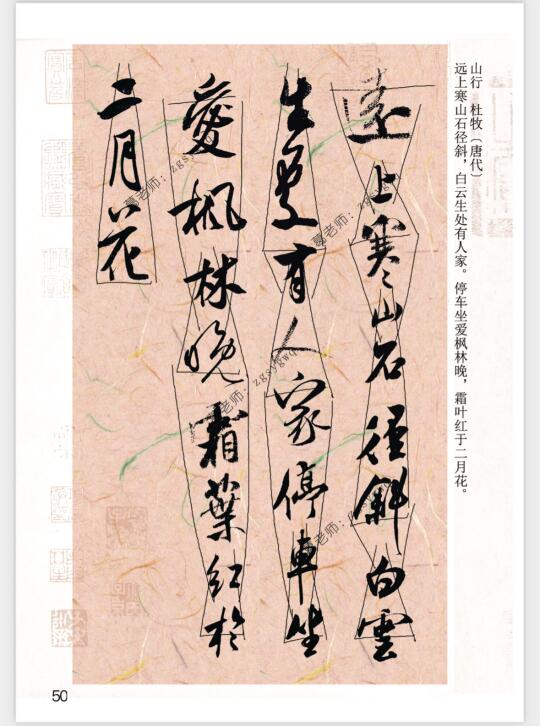 山行 杜牧（唐代）
远上寒山石径斜，白云生处有人家。停车坐爱枫林晚，霜叶红于二月花。
遠上寒山石徑斜白雲
生處有人家停車坐
愛楓林晚霜葉紅於
二月花
老师：zgsygwq
老师：zgsygwq
老师：
老师：
50